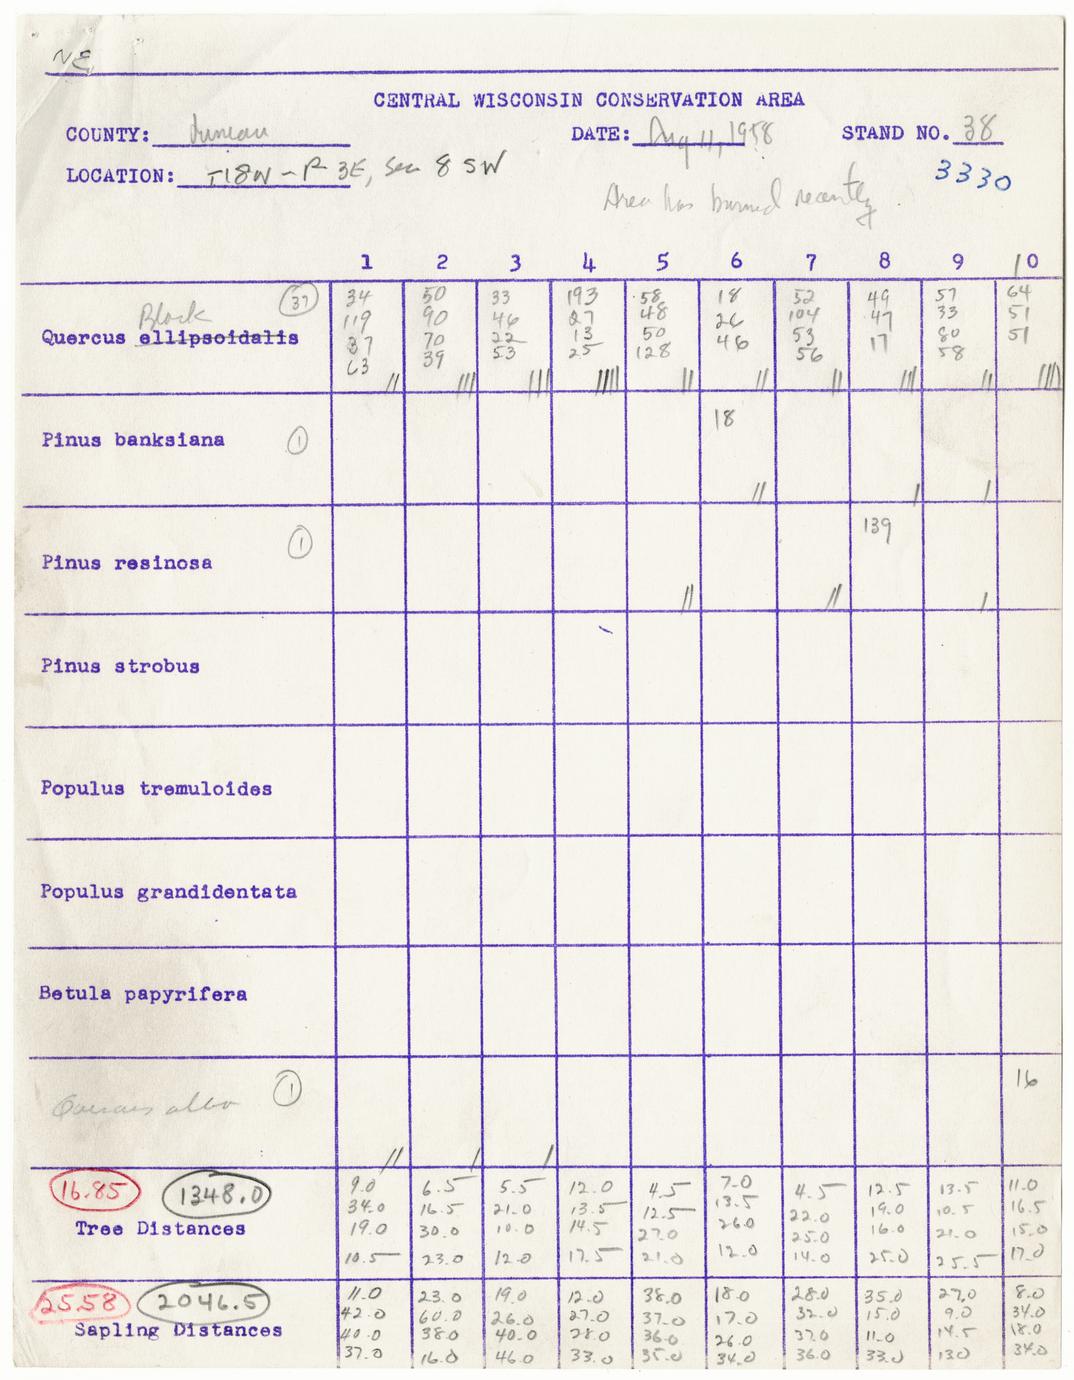 NE
CENTRAL WISCONSIN CONSERVATION AREA
COUNTY: Juneau DATE: Aug 11, 1958 STAND NO. 38
LOCATION: T18W - R 3E, Sec 8 SW 3330
Area has burned recently.
1 2 3 4 5 6 7 8 9 10
37 34 50 33 193 58 18 52 49 57 64
Black 119 90 46 27 48 26 104 47 33 51
Quercus ellipsoidalis 37 70 22 13 50 46 53 17 80 51
63 39 53 25 128 56 58
|| ||| ||| |||| || || || ||| || ||||
18
Pinus banksiana 1
|| | |
1 139
Pinus resinosa
|| || |
Pinus strobus
Populus tremuloides
Populus grandidentata
Betula papyrifera
Quercus alba 1 16
|| | |
16.85 1348.0 9.0 6.5 5.5 12.0 4.5 7.0 4.5 12.5 13.5 11.0
34.0 16.5 21.0 13.5 12.5 13.5 22.0 19.0 10.5 16.5
Tree Distances 19.0 30.0 10.0 14.5 27.0 26.0 25.0 16.0 21.0 15.0
10.5 23.0 12.0 17.5 21.0 12.0 14.0 25.0 25.5 17.0
25.58 2046.5 11.0 23.0 19.0 12.0 38.0 18.0 28.0 35.0 27.0 8.0
42.0 60.0 26.0 27.0 37.0 17.0 32.0 15.0 9.0 34.0
Sapling Distances 40.0 38.0 40.0 28.0 36.0 26.0 37.0 11.0 14.5 18.0
37.0 16.0 46.0 33.0 35.0 34.0 36.0 33.0 130 34.0